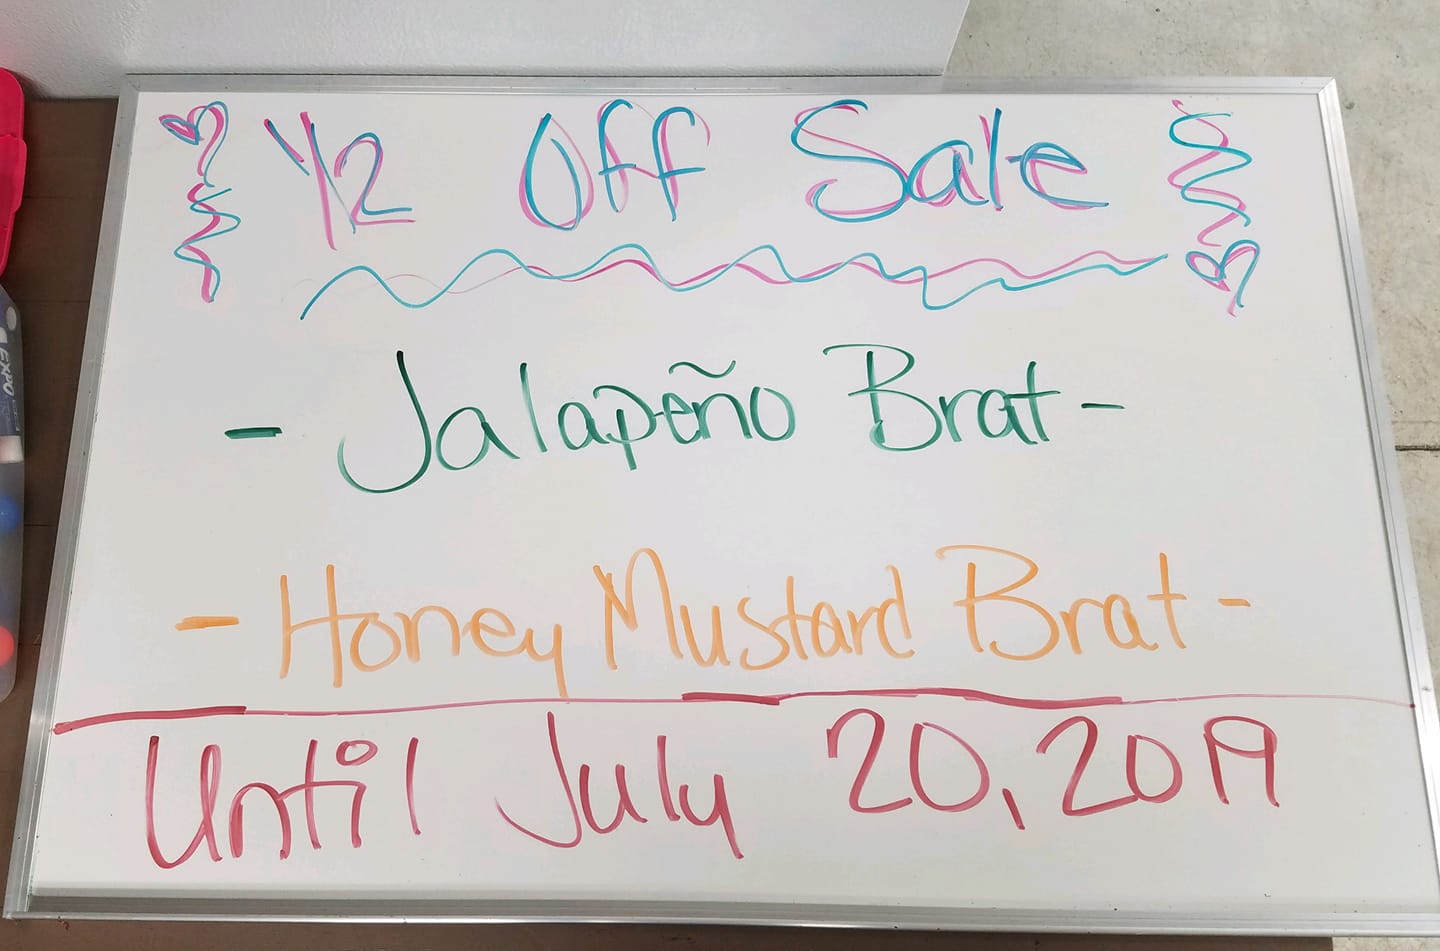 1/2 Off Sale
- Jalapeño Brat -
- Honey Mustard Brat -
Until July 20, 2019
EXPO